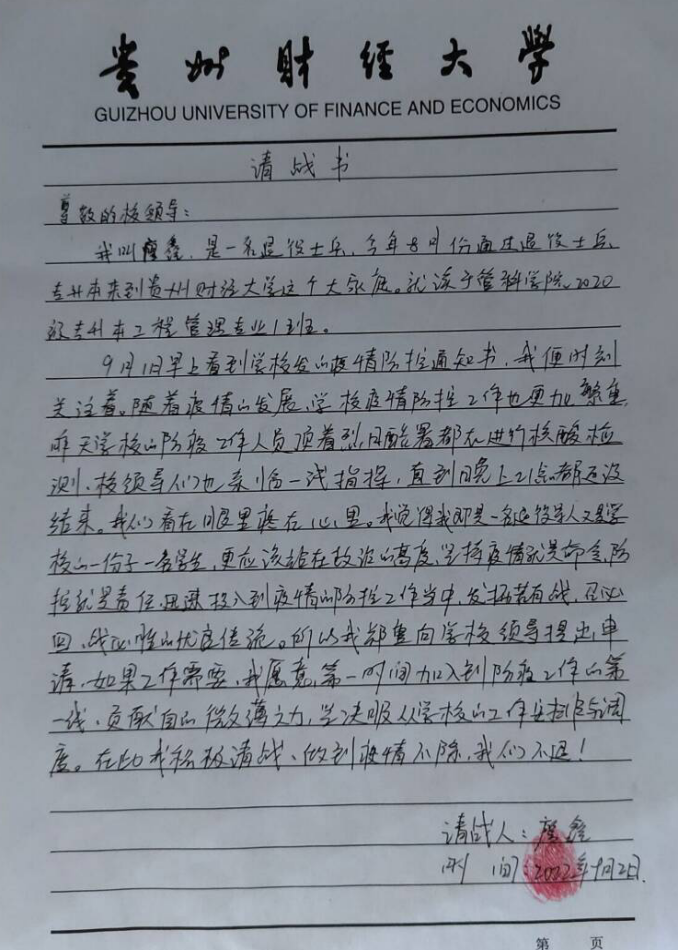 贵州财经大学
GUIZHOU UNIVERSITY OF FINANCE AND ECONOMICS
请战书
尊敬的校领导：
我叫廖鑫，是一名退役士兵，今年8月份通过退役士兵
专升本来到贵州财经大学这个大家庭。就读于管科学院2020
级专升本工程管理专业1班。
9月1日早上看到学校发的疫情防控通知书，我便时刻
关注着。随着疫情的发展，学校疫情防控工作也更加繁重，
昨天学校的防疫工作人员顶着烈日酷暑都在进行核酸检
测、校领导们也亲临一线指挥，直到晚上21点都还没
结束。我们看在眼里疼在心里。我觉得我即是一名退役军人又是学
校的一份子一名学生，更应该站在政治的高度，坚持疫情就是命令，防
控就是责任，迅速投入到疫情的防控工作当中，发扬若有战，召必
回，战必胜的优良传统。所以我郑重向学校领导提出申
请，如果工作需要，我愿意第一时间加入到防疫工作的第
一线、贡献自己的微薄之力，坚决服从学校的工作安排与调
度。在此我积极请战、做到疫情不除，我们不退！
请战人：廖鑫
时间：2022年9月2日.
第 页